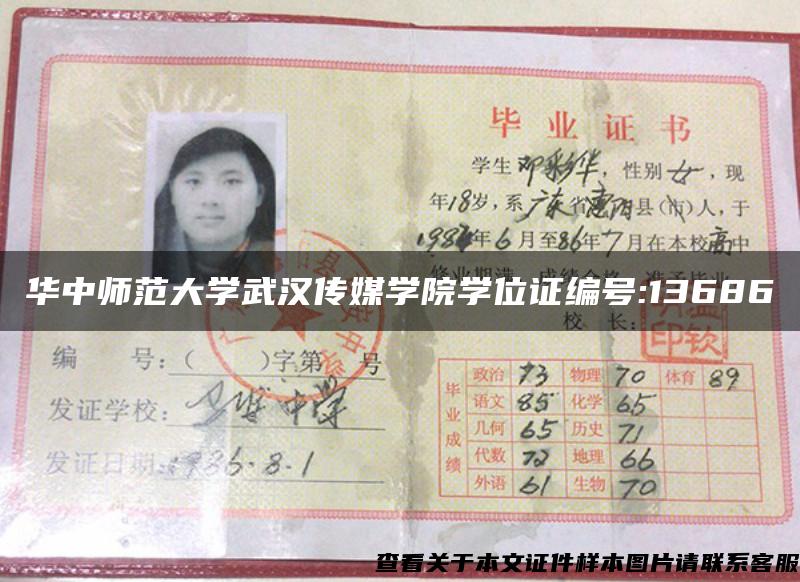 毕业证书
学生 邓彩华，性别女，现
年18岁，系广东省惠阳县(市)人，于
1984年6月至86年7月在本校高中
华中师范大学武汉传媒学院学位证编号:13686
校 长：
编 号：( )字第 号
发证学校：
中学
发证日期：1986.8.1
毕业成绩
政治 73 物理 70 体育 89
语文 85 化学 65
几何 65 历史 71
代数 72 地理 66
外语 61 生物 70
查看关于本文证件样本图片请联系客服